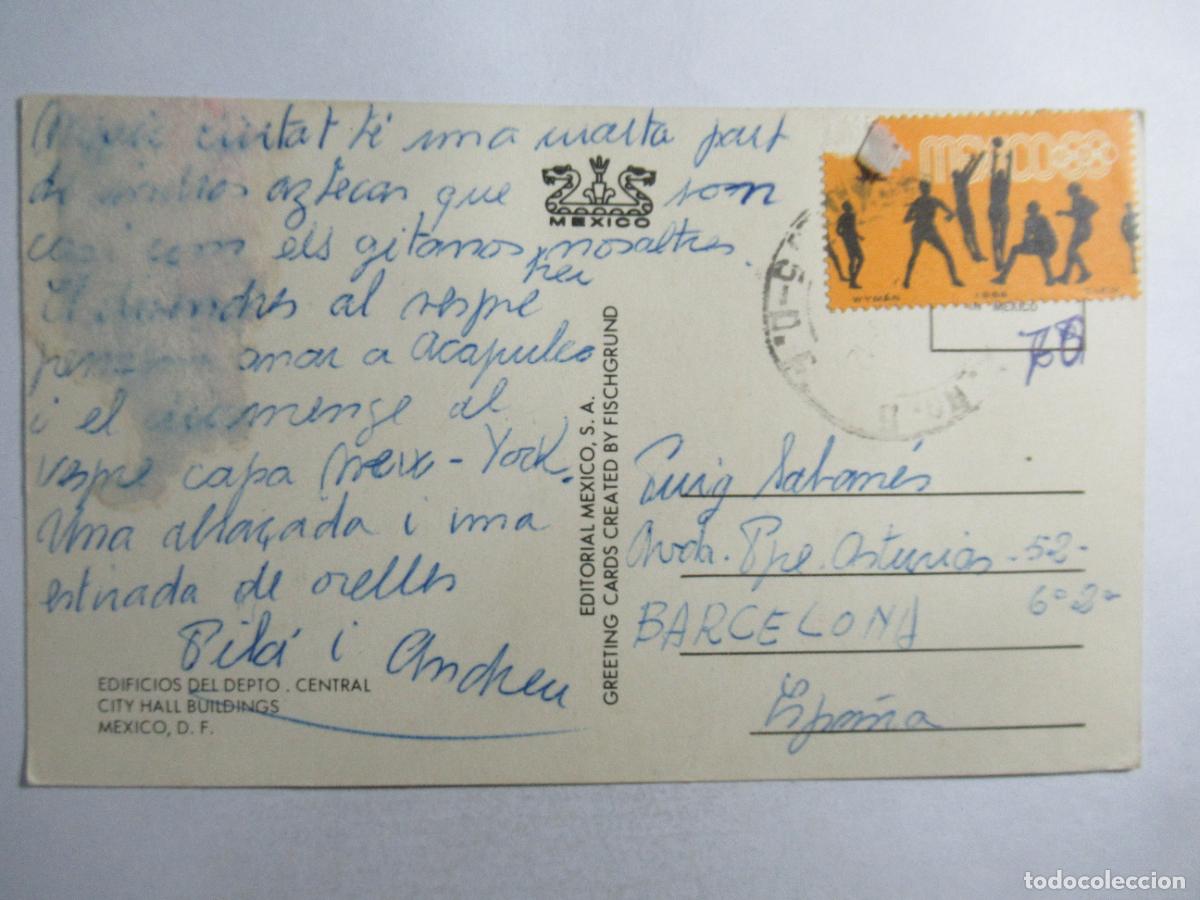 Mexic ciutat té una malta part
de indios aztecas que som
casi com els gitanos nosaltres.
per
El divendres al vespre
pensem anar a Acapulco
i el diumenge al
vespre capa New-York.
Una abraçada i una
estirada de orelles
Pilá i Andreu
EDIFICIOS DEL DEPTO. CENTRAL
CITY HALL BUILDINGS
MEXICO, D. F.
MEXICO
EDITORIAL MEXICO, S. A.
GREETING CARDS CREATED BY FISCHGRUND
MEXICO68
WYMAN 1966
MEXICO
Puig Sabanés
Avda. Ppe. Asturias -52-
6º 2ª
BARCELONA
España
todocoleccion